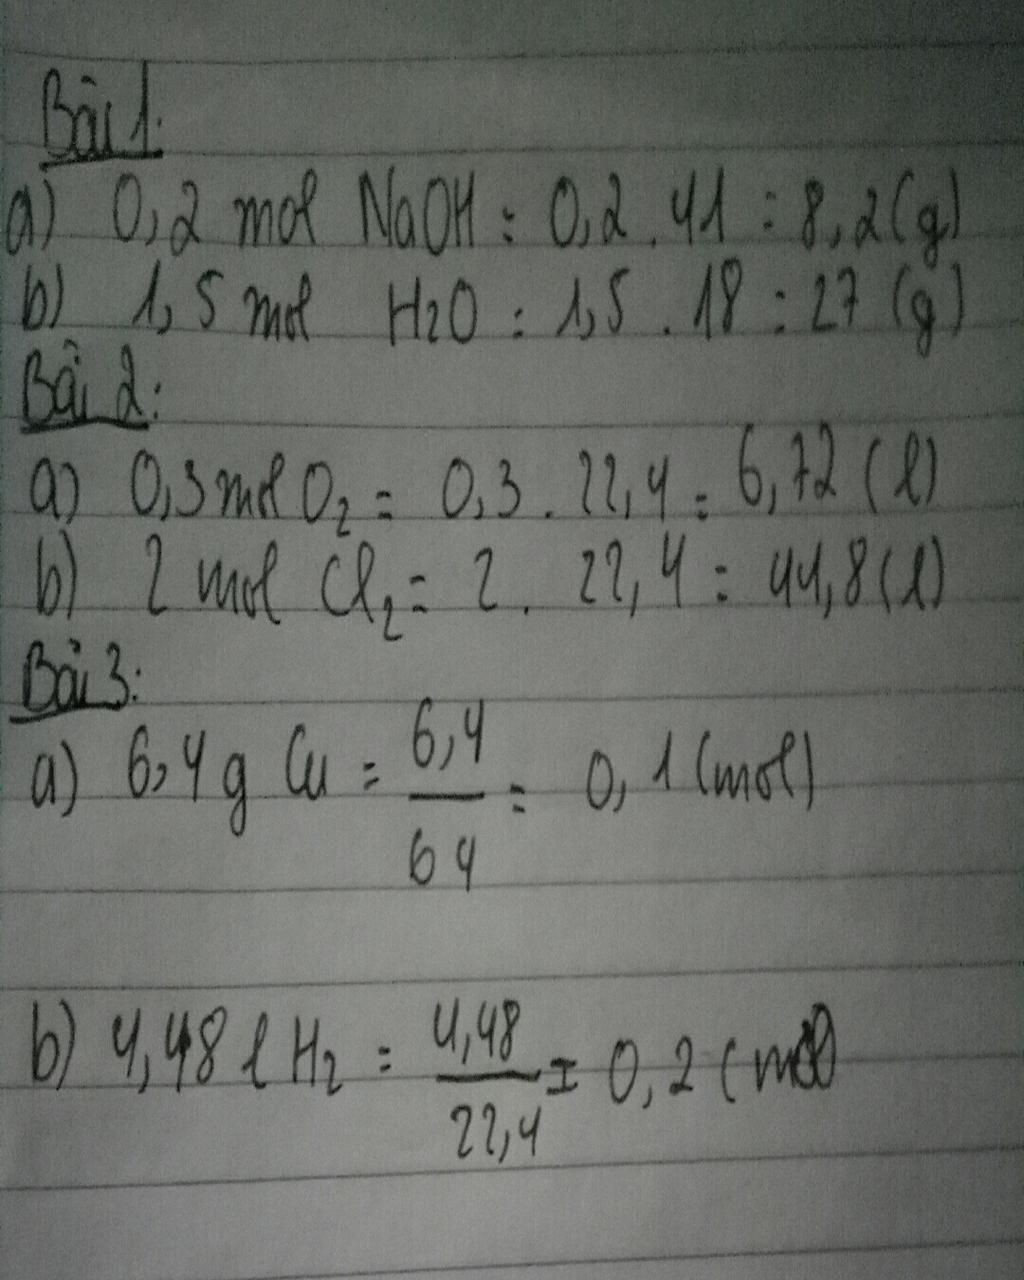 Bài 1:
a) 0,2 mol NaOH = 0,2 . 41 = 8,2 (g)
b) 1,5 mol H2O = 1,5 . 18 = 27 (g)
Bài 2:
a) 0,3 mol O2 = 0,3 . 22,4 = 6,72 (l)
b) 2 mol Cl2 = 2 . 22,4 = 44,8 (l)
Bài 3:
a) 6,4 g Cu = 6,4/64 = 0,1 (mol)
b) 4,48 l H2 = 4,48/22,4 = 0,2 (mol)